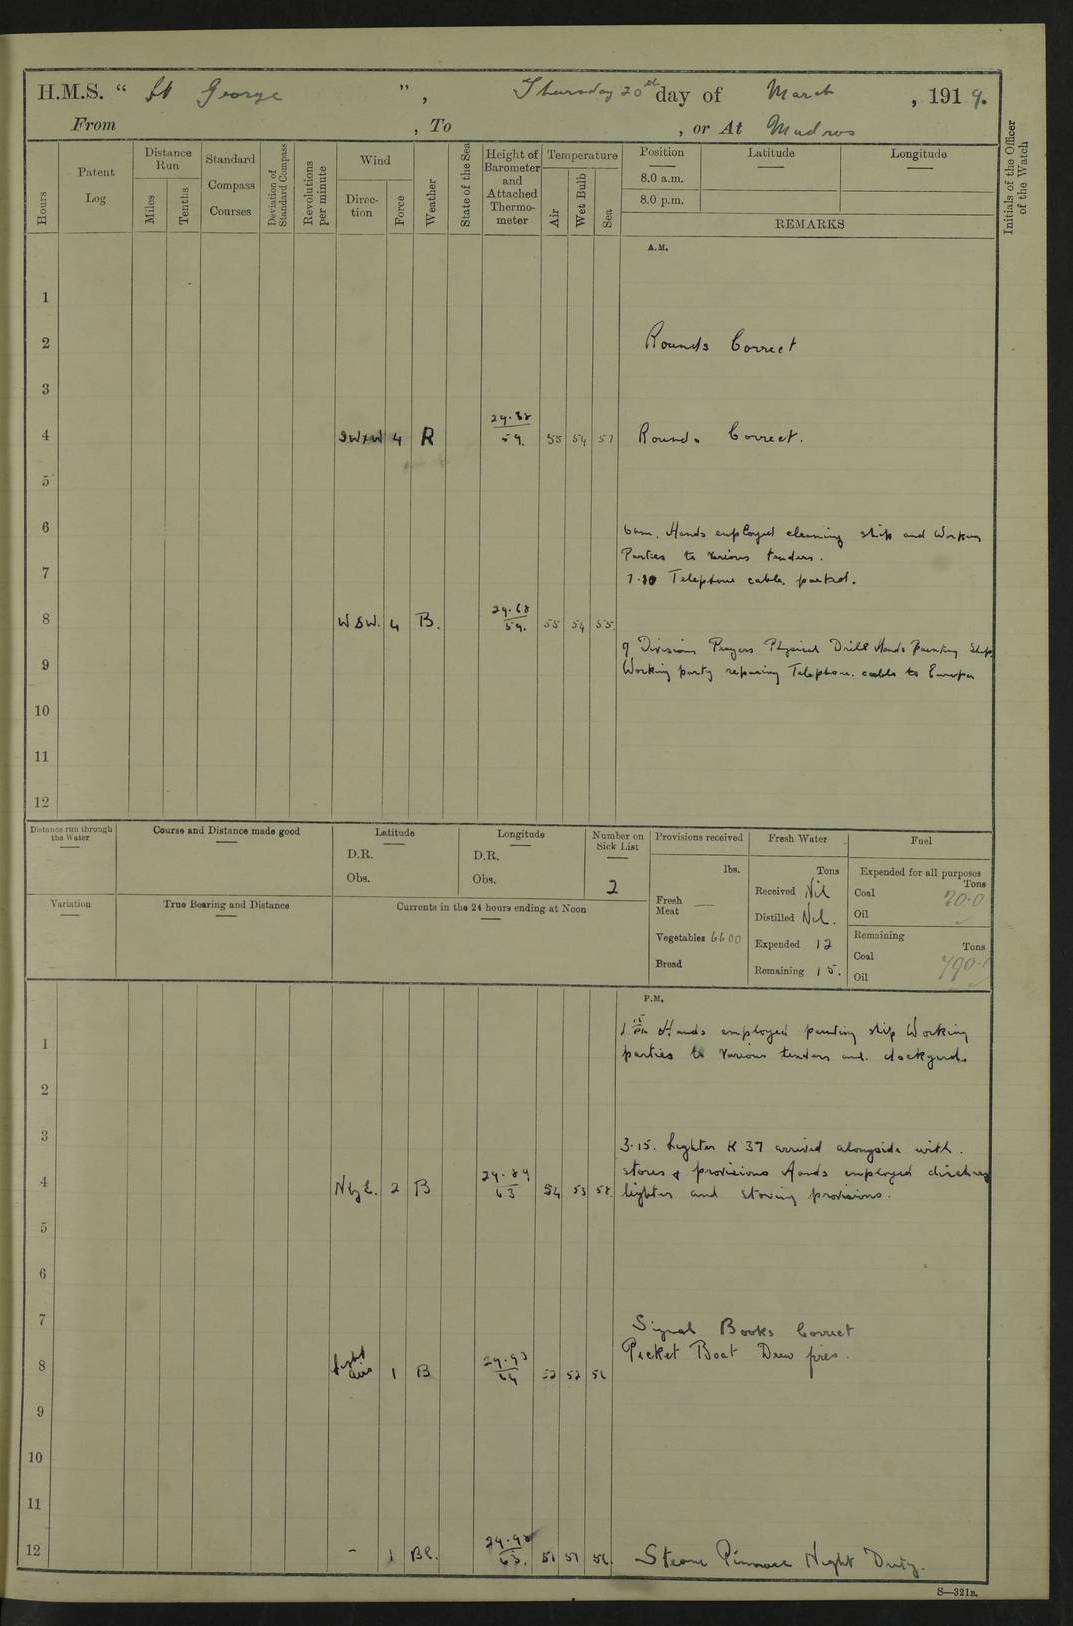 H.M.S. “ St George ”, Thursday 20th day of March, 1919.
From , To , or At Mudros
Hours
Patent Log
Distance Run
Miles
Tenths
Standard Compass Courses
Deviation of Standard Compass
Revolutions per minute
Wind
Direc-tion
Force
Weather
State of the Sea
Height of Barometer and Attached Thermo-meter
Temperature
Air
Wet Bulb
Sea
Position
8.0 a.m.
8.0 p.m.
Latitude
Longitude
REMARKS
Initials of the Officer of the Watch
A.M.
1
2 Rounds Correct
3
4 SWxW 4 R 59. 55 54 57 Rounds Correct.
5
6 6am. Hands employed cleaning ship and Working
Parties to various tenders.
7 7.30 Telephone cable parted.
8 WSW. 4 B. 29.68 59. 55 54 55.
9 Divisions Prayers Physical Drill Hands Painting Ship
9 Working party repairing Telephone cable to Europa
10
11
12
Distance run through the Water
Course and Distance made good
Latitude
D.R.
Obs.
Longitude
D.R.
Obs.
Number on Sick List
2
Provisions received
lbs.
Fresh Meat —
Vegetables 6600
Bread
Fresh Water
Tons
Received Nil
Distilled Nil.
Expended 12
Remaining 15.
Fuel
Expended for all purposes
Tons
Coal 20.0
Oil
Remaining
Tons
Coal 790.
Oil
Variation
True Bearing and Distance
Currents in the 24 hours ending at Noon
P.M.
1 15 pm Hands employed painting ship Working
1 parties to various tenders and dockyard.
2
3 3.15. Lighter K 37 arrived alongside with
stores & provisions Hands employed discharg
4 NbyE. 2 B 29.89 63 54 53 58. lighter and stowing provisions.
5
6
7 Signal Books Correct
Picket Boat Drew fires.
8 Light airs 1 B 29.93 64 52 52 56
9
10
11
12 - 1 BC. 29.98 63. 51 51 56. Steam Pinnace Night Duty.
S—321B.